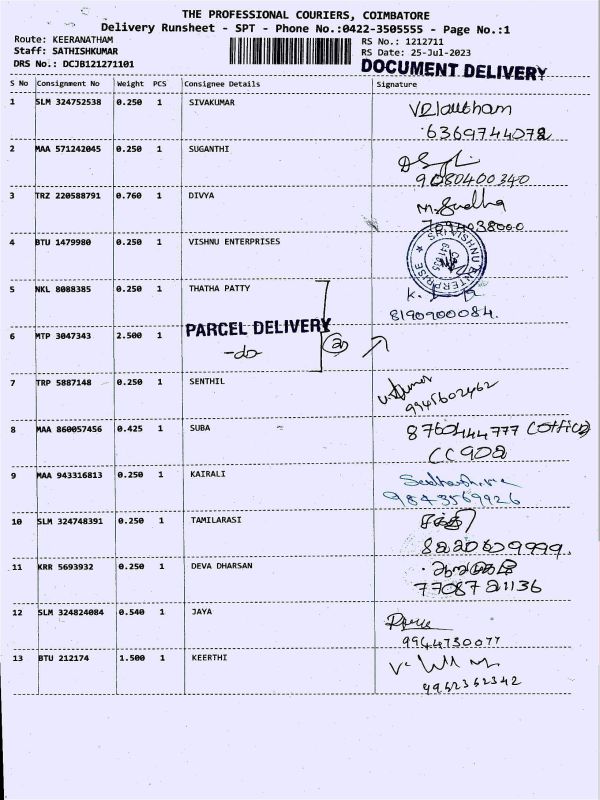 THE PROFESSIONAL COURIERS, COIMBATORE
Delivery Runsheet - SPT - Phone No.:0422-3505555 - Page No.:1
Route: KEERANATHAM
Staff: SATHISHKUMAR
DRS No.: DCJB121271101
RS No.: 1212711
RS Date: 25-Jul-2023
DOCUMENT DELIVERY
S No Consignment No Weight PCS Consignee Details Signature
1 SLM 324752538 0.250 1 SIVAKUMAR
6369744072
2 MAA 571242045 0.250 1 SUGANTHI
9080400340
3 TRZ 220588791 0.760 1 DIVYA M. Sudha
7094038000
4 BTU 1479980 0.250 1 VISHNU ENTERPRISES
SRI VISHNU ENTERPRISE
5 NKL 8088385 0.250 1 THATHA PATTY
8190900084.
6 MTP 3047343 2.500 1 PARCEL DELIVERY
-do- (2)
7 TRP 5887148 0.250 1 SENTHIL
9945602462
8 MAA 860057456 0.425 1 SUBA 8760444777 (office)
CC902
9 MAA 943316813 0.250 1 KAIRALI
9843569926
10 SLM 324748391 0.250 1 TAMILARASI சக்தி
8220609999.
11 KRR 5693932 0.250 1 DEVA DHARSAN
7708721136
12 SLM 324824084 0.540 1 JAYA
9944730077
13 BTU 212174 1.500 1 KEERTHI
9952352342